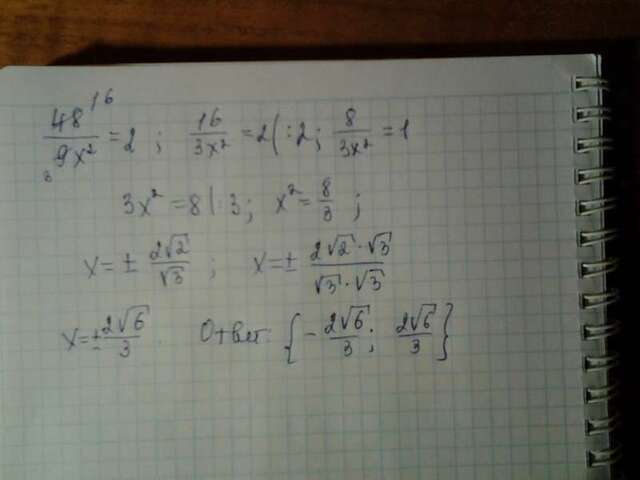 48^16/9_3x² = 2 ; 16/3x² = 2 | :2 ; 8/3x² = 1
3x² = 8 | :3 ; x² = 8/3 ;
x = ± 2√2/√3 ; x = ± 2√2·√3/√3·√3
x = ± 2√6/3 . Ответ: {- 2√6/3 ; 2√6/3}